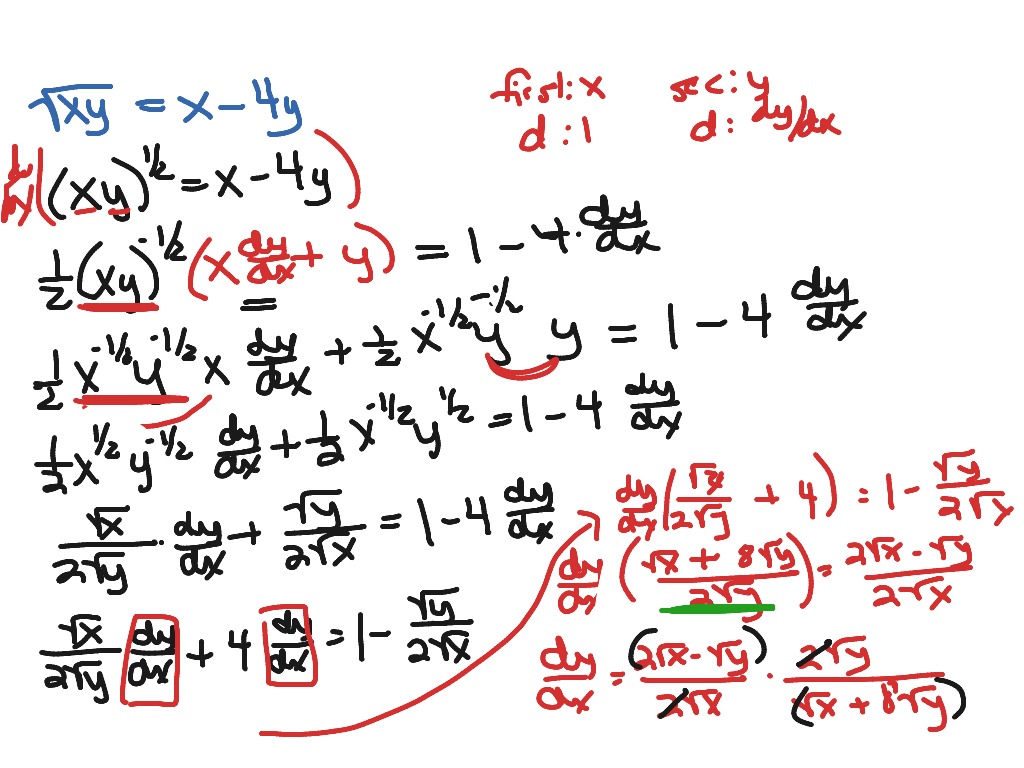 √xy = x - 4y
first: x sec: y
d: 1 d: dy/dx
dy/dx ((xy)^1/2 = x - 4y)
1/2 (xy)^-1/2 (x dy/dx + y) = 1 - 4 · dy/dx
=
1/2 x^-1/2 y^-1/2 x dy/dx + 1/2 x^-1/2 y^-1/2 y = 1 - 4 dy/dx
1/2 x^1/2 y^-1/2 dy/dx + 1/2 x^-1/2 y^1/2 = 1 - 4 dy/dx
√x/2√y · dy/dx + √y/2√x = 1 - 4 dy/dx
√x/2√y dy/dx + 4 dy/dx = 1 - √y/2√x
dy/dx (√x/2√y + 4) = 1 - √y/2√x
dy/dx (√x + 8√y/2√y) = 2√x - √y/2√x
dy/dx = (2√x - √y)/2√x · 2√y/(√x + 8√y)